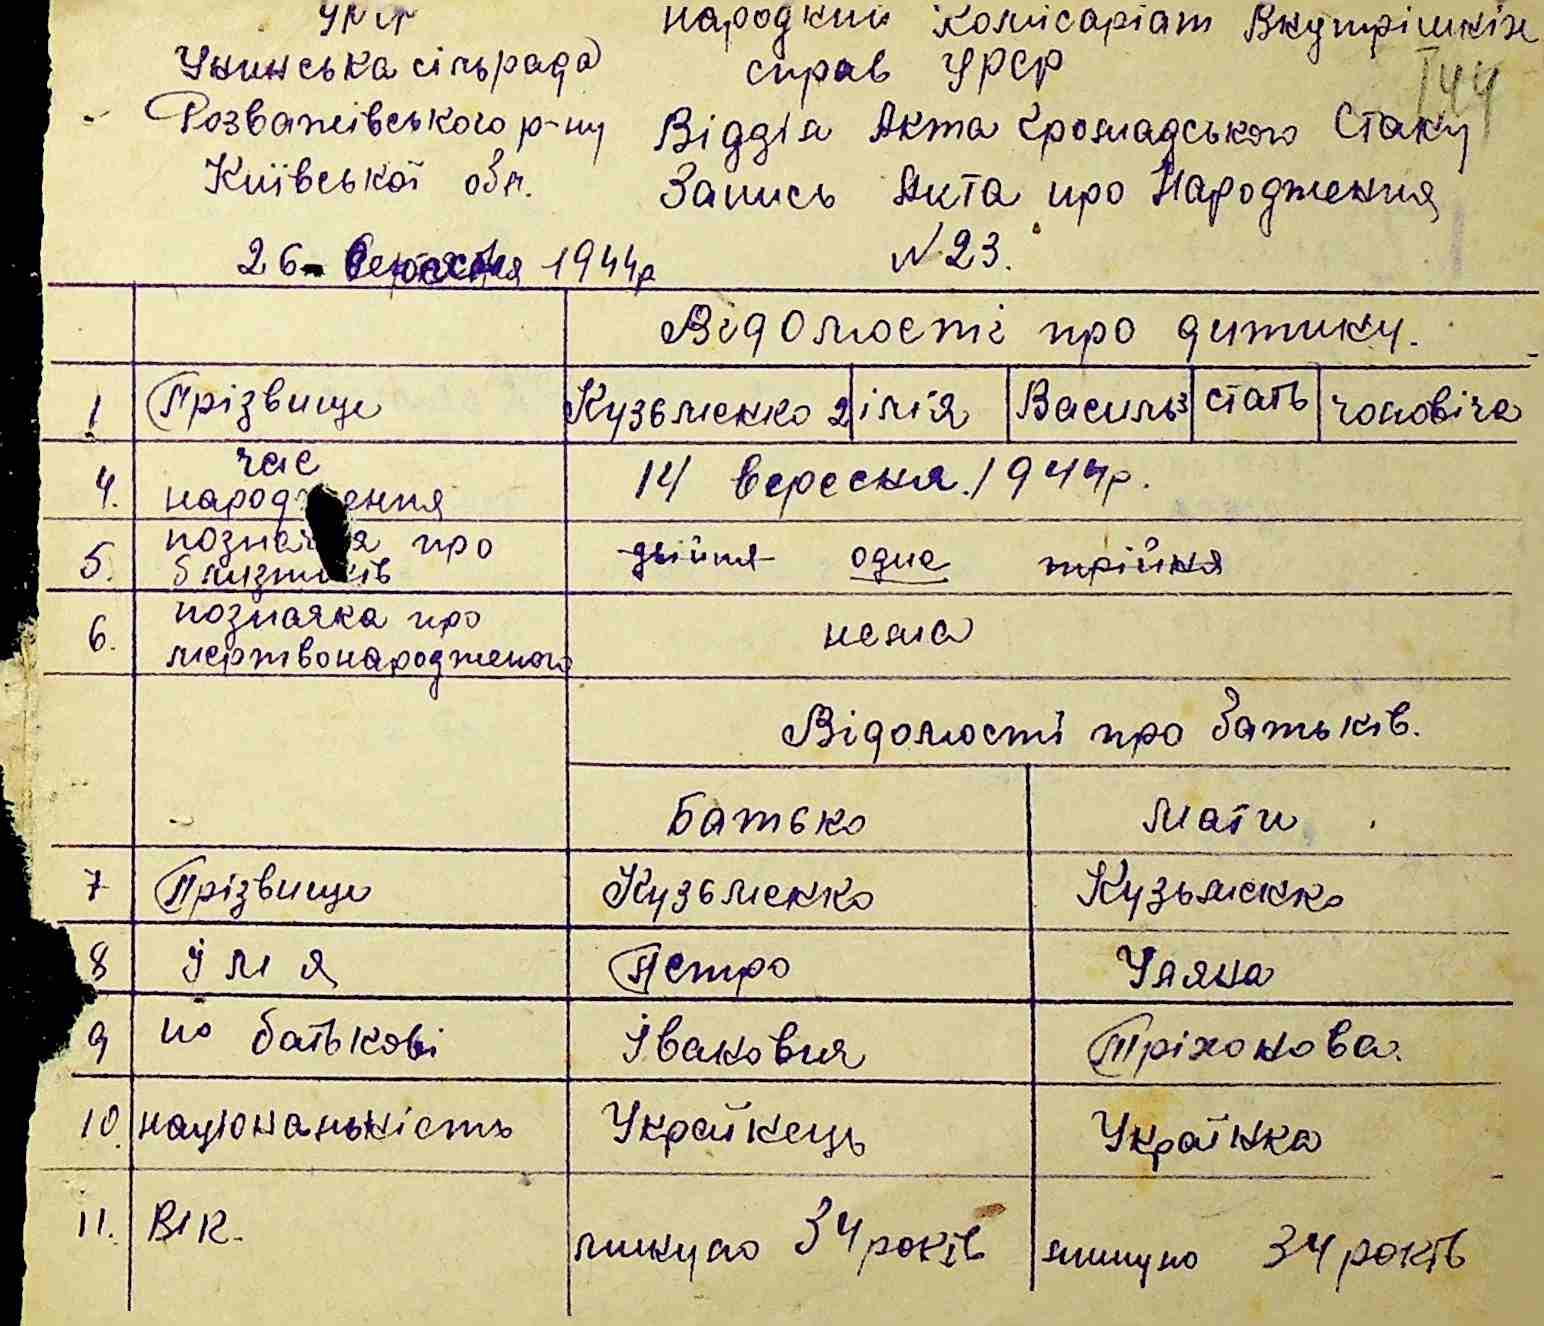 УРСР
Унинська сільрада
Розважівського р-ну
Київської обл.
Народний Комісаріат Внутрішніх
справ УРСР
144
Відділ Акта Громадського Стану
Запись Акта про Народження
26 1944р
N 23.
Відомості про дитину.
1 Прізвище Кузьменко 2 імія Василь 3 стать чоловіча
4. час народження 14 вересня 1944р.
5. позначка про близнюків двійня одна трійня
6. познаяка про мертвонародженого нема
Відомості про батьків.
Батько Мати
7 Прізвище Кузьменко Кузьменко
8 імя Петро Уляна
9 по батькові Івановия Тріхонова.
10. національність Украйнець Українка
11. Вік. минуло 34 років минуло 34 років